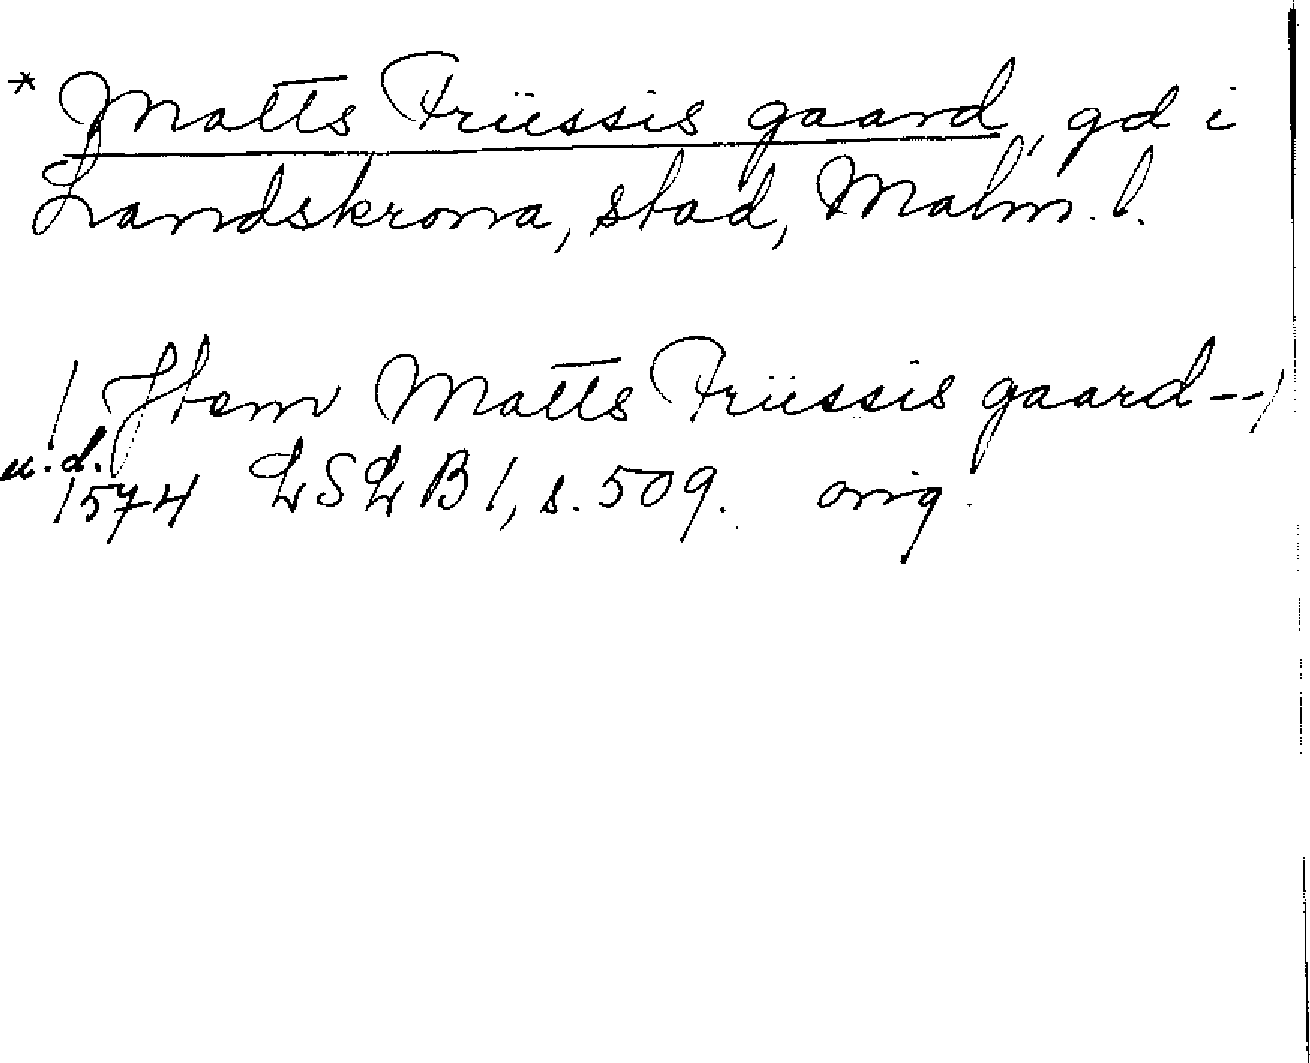 * Matts Früssis gaard, gd i
Landskrona, stad, Malm. l.
/ Jtem Matts Früssis gaard--/
u.d.
1574 LSLB 1, s. 509. orig.